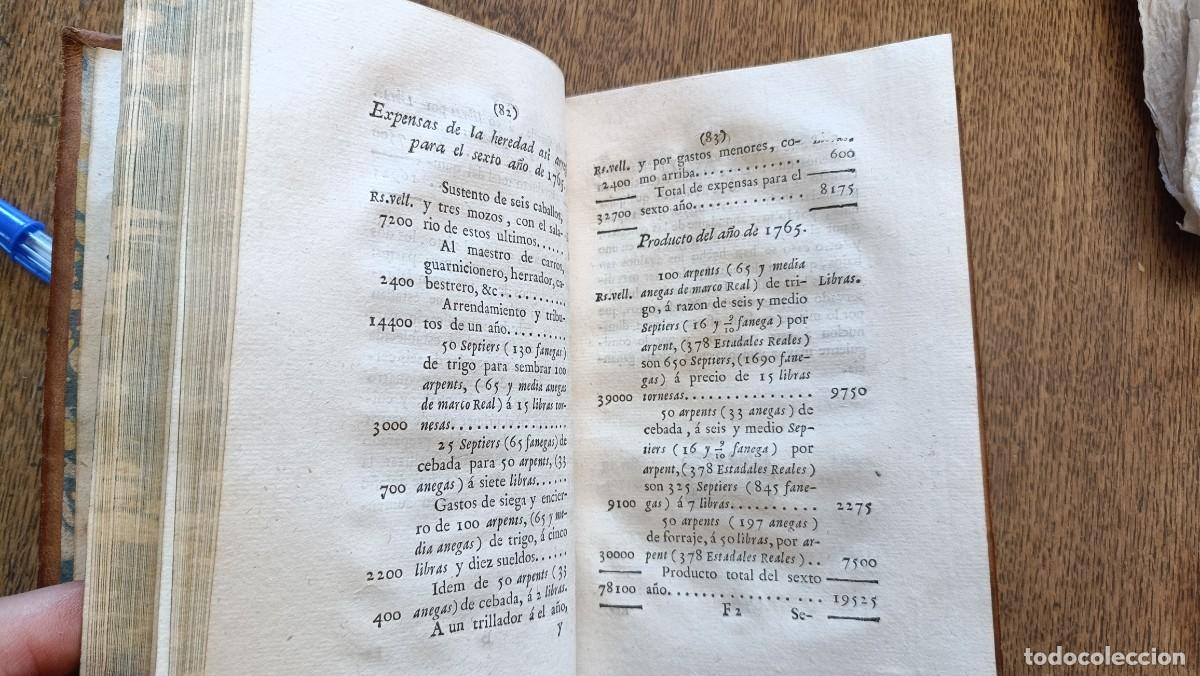 (82)
Expensas de la heredad asi
para el sexto año de 1765.
Sustento de seis caballos,
Rs.vell. y tres mozos, con el sala-
7200 rio de estos ultimos......
Al maestro de carros,
guarnicionero, herrador, ca-
2400 bestrero, &c..........
Arrendamiento y tribu-
14400 tos de un año.........
50 Septiers (130 fanegas)
de trigo para sembrar 100
arpents, (65 y media anegas
de marco Real) á 15 libras tor-
3000 nesas................
25 Septiers (65 fanegas) de
cebada para 50 arpents, (33
700 anegas) á siete libras.....
Gastos de siega y encier-
ro de 100 arpents, (65 y me-
dia anegas) de trigo, á cinco
2200 libras y diez sueldos......
Idem de 50 arpents (33
400 anegas) de cebada, á 2 libras.
A un trillador á el año,
y
(83)
Rs.vell. y por gastos menores, co-
12400 mo arriba............ 600
Total de expensas para el
32700 sexto año............. 8175
Producto del año de 1765.
100 arpents (65 y media
Rs.vell. anegas de marco Real) de tri- Libras.
go, á razon de seis y medio
Septiers (16 y 9/10 fanega) por
arpent, (378 Estadales Reales)
son 650 Septiers, (1690 fane-
gas) á precio de 15 libras
39000 tornesas............... 9750
50 arpents (33 anegas) de
cebada, á seis y medio Sep-
tiers (16 y 9/10 fanega) por
arpent, (378 Estadales Reales)
son 325 Septiers (845 fane-
9100 gas) á 7 libras.......... 2275
50 arpents (197 anegas)
de forraje, á 50 libras, por ar-
30000 pent (378 Estadales Reales).. 7500
Producto total del sexto
78100 año.................. 19525
F2 Se-
todocoleccion